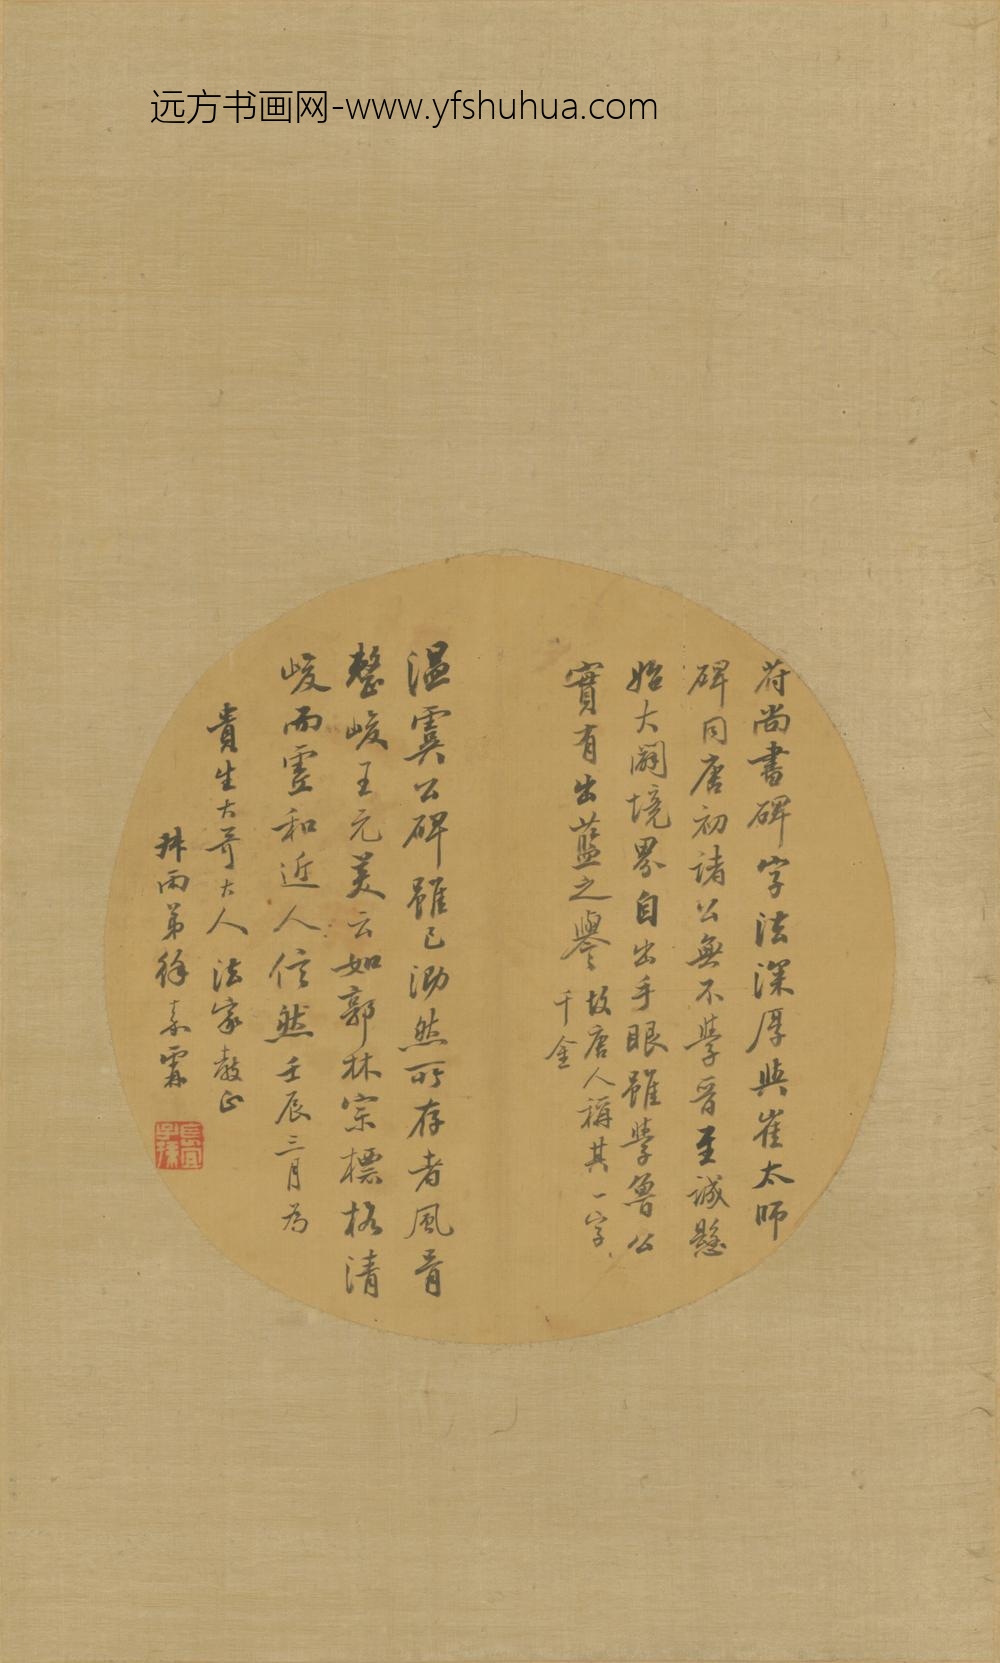 远方书画网-www.yfshuhua.com
苻尚書碑字法深厚與崔太師
碑同唐初諸公無不學晋至誠懸
始大闢境界自出手眼雖學魯公
實有出藍之譽故唐人稱其一字
千金
温虞公碑雖已泐然所存者風骨
整峻王元美云如郭林宗標格清
峻而虛和近人信然壬辰三月為
貴生大哥大人法家教正
弟徐素霖
長宜
子孫